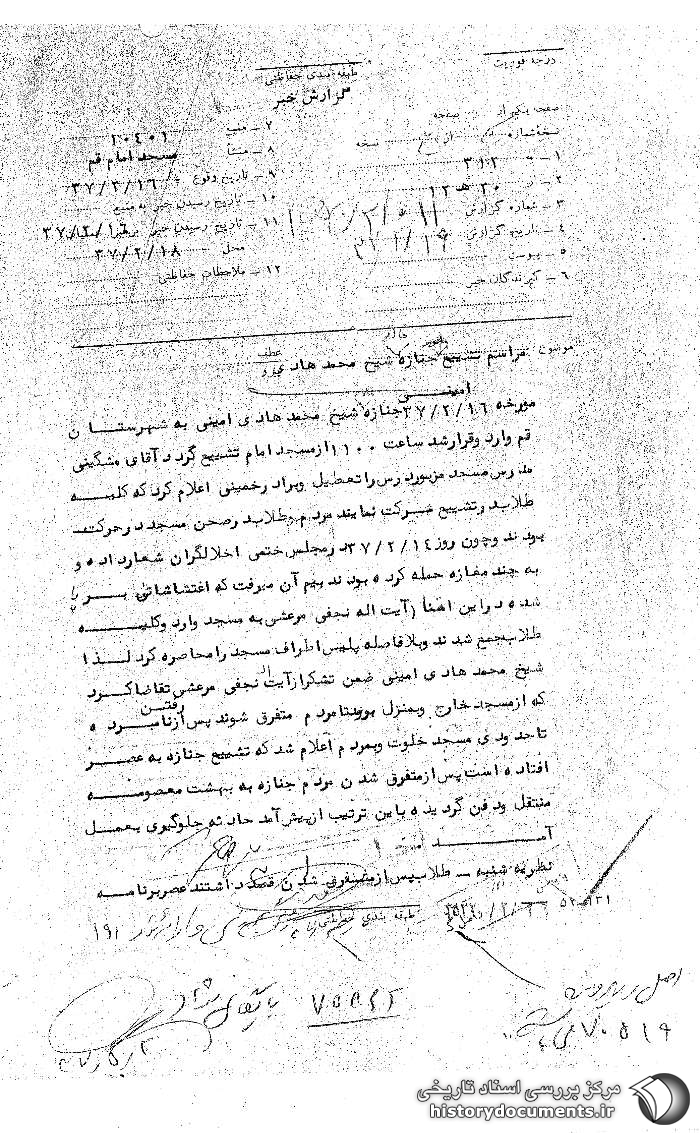 درجه فوریت
طبقه بندی حفاظتی
گزارش خبر
صفحه یک از صفحه
نسخه شماره از نسخه
۱ - به ۳۱۲
۲ - ۲۰ هـ ۱۲
۳ - شماره گزارش
۴ - تاریخ گزارش
۵ - پیوست
۶ - گیرندگان خبر
۷ - منبع ۱۰۴۰۱
۸ - منشأ مسجد امام قم
۹ - تاریخ وقوع ۳۷/۲/۱۶
۱۰ - تاریخ رسیدن خبر به منبع
۱۱ - تاریخ رسیدن خبر ۳۷/۲/
محل ۳۷/۲/۱۸
۱۲ - ملاحظات حفاظتی
موضوع مراسم تشییع جنازه شیخ محمد هادی
امینی
مورخه ۳۷/۲/۱۶ جنازه شیخ محمد هادی امینی به شهرستان
قم وارد و قرار شد ساعت ۱۱۰۰ از مسجد امام تشییع گردد آقای مشگینی
مدرس مسجد مزبور درس را تعطیل و براد رخمینی اعلام کرد که کلیه
طلاب در تشییع شرکت نمایند مردم و طلاب در صحن مسجد در حرکت
بودند و چون روز ۳۷/۲/۱۴ در مجلس ختمی اخلالگران شعار داده و
به چند مغازه حمله کرده بودند بیم آن میرفت که اغتشاشاتی بر پا
شده در این اثنا (آیت اله نجفی مرعشی به مسجد وارد و کلیه
طلاب جمع شدند و بلافاصله پلیس اطراف مسجد را محاصره کرد لذا
شیخ محمد هادی امینی ضمن تشکر از آیت اله نجفی مرعشی تقاضا کرد
که از مسجد خارج و بمنزل برود تا مردم متفرق شوند پس از رفتن نامبرده
تا حدودی مسجد خلوت و بمردم اعلام شد که تشییع جنازه به عصر
افتاده است پس از متفرق شدن مردم جنازه به بهشت معصومه
منتقل و دفن گردیده باین ترتیب از پیش آمد حادثه جلوگیری بعمل
آمد
نظریه شنبه - طلاب پس از متفرق شدن قصد داشتند عصر برنامه
طبقه بندی حفاظتی
۵۲-۹۳۱
اصل در پرونده
۷۰۵۱۹ می باشد
بایگانی شود
مرکز بررسی اسناد تاریخی
historydocuments.ir